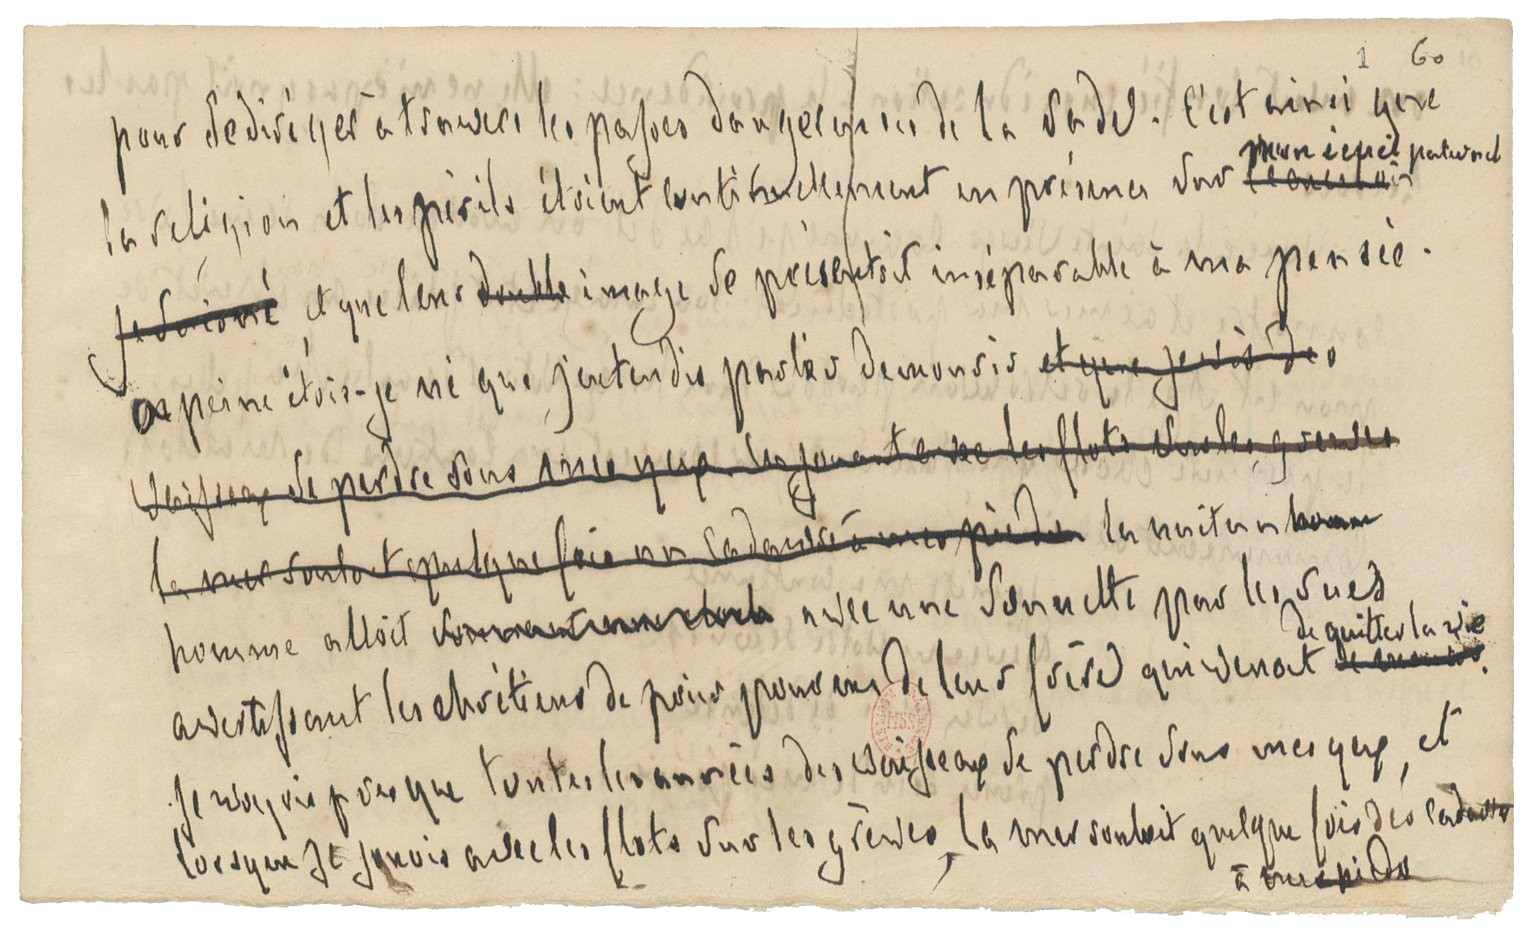 1 60
pour se diriger à travers les passes dangereuses de la rade. C'est ainsi que
mon écueil paternel
la religion et les périls étoient continuellement en présence sur
je suis né et que leur double image se présentoit inséparable à ma pensée.
à peine étois-je né que j'entendis parler de mourir et que je vis des
vaisseaux se perdre sous mes yeux. en jouant avec les flots sur les grèves
la mer rouloit quelque fois un cadavre à mes pieds la nuit un homme
homme alloit avec une sonnette par les rues
de quitter la vie
avertissant les chrétiens de prier pour un de leur frère qui venoit de mourir.
Je voyois presque toutes les années des vaisseaux se perdre sous mes yeux, et
lorsque je jouois avec les flots sur les grèves, la mer rouloit quelque fois des cadavres
à mes pieds